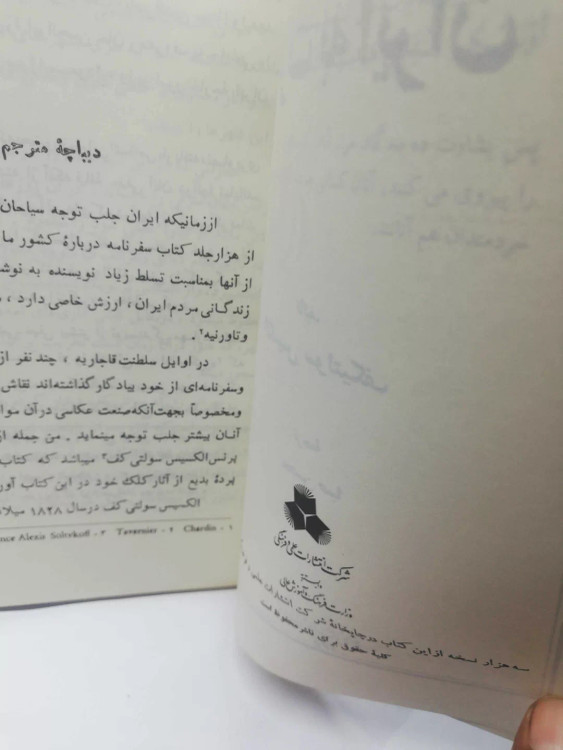 دیباچهٔ مترجم
اززمانیکه ایران جلب توجه سیاحان
از هزارجلد کتاب سفرنامه دربارهٔ کشور ما
از آنها بمناسبت تسلط زیاد نویسنده به نوش
زندگانی مردم ایران ، ارزش خاصی دارد ،
وتاورنیه۲ .
در اوایل سلطنت قاجاریه ، چند نفر از
وسفرنامه‌ای از خود بیادگار گذاشته‌اند نقاش
ومخصوصاً بجهت‌آنکه‌صنعت عکاسی درآن
آنان بیشتر جلب توجه مینماید . من جمله از
پرنس‌الکسیس سولتی‌کف۳ میباشد که کتاب
پردهٔ بدیع از آثار کلک خود در این کتاب
الکسیس سولتی‌کف درسال ۱۸۲۸
۱ - Chardin ۲ - Tavernier ۳ - nce Alexis Soltekoff
ایران
شرکت انتشارات علمی و فرهنگی
وابسته به
وزارت فرهنگ و آموزش عالی
سه هزار نسخه از این کتاب در چاپخانهٔ شرکت انتشارات علمی و
کلیهٔ حقوق برای ناشر محفوظ است